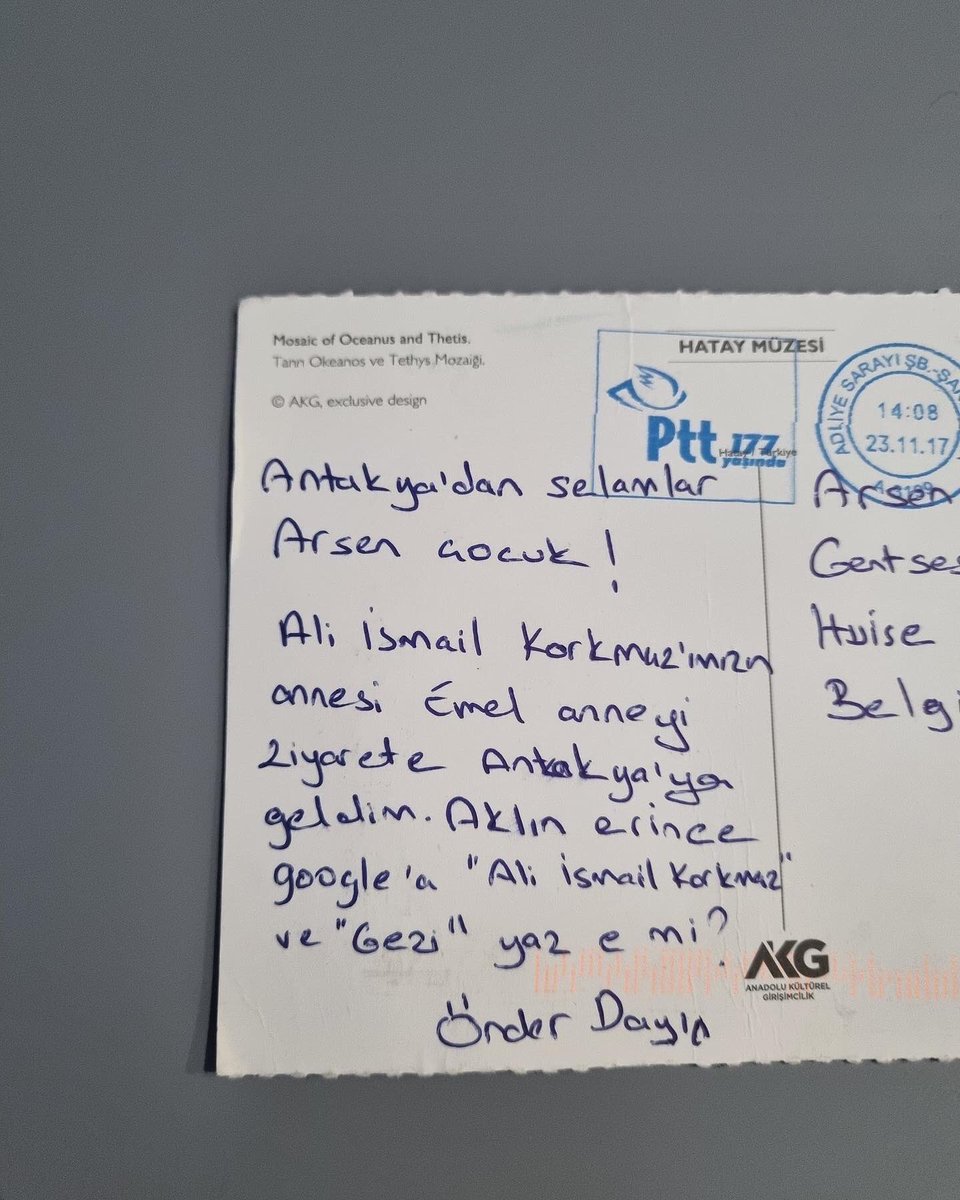 Mosaic of Oceanus and Thetis.
Tanrı Okeanos ve Tethys Mozaiği.
© AKG, exclusive design
HATAY MÜZESİ
Ptt 177
yaşında
Hatay / Türkiye
ADLİYE SARAYI ŞB.-ŞAN
14:08
23.11.17
Antakya'dan selamlar
Arsen çocuk!
Ali İsmail Korkmaz'ımızın
annesi Emel anneyi
ziyarete Antakya'ya
geldim. Aklın erince
google'a "Ali İsmail Korkmaz"
ve "Gezi" yaz e mi?
Önder Dayın
Arsen
Gentses
Huise
Belgi
AKG
ANADOLU KÜLTÜREL
GİRİŞİMCİLİK